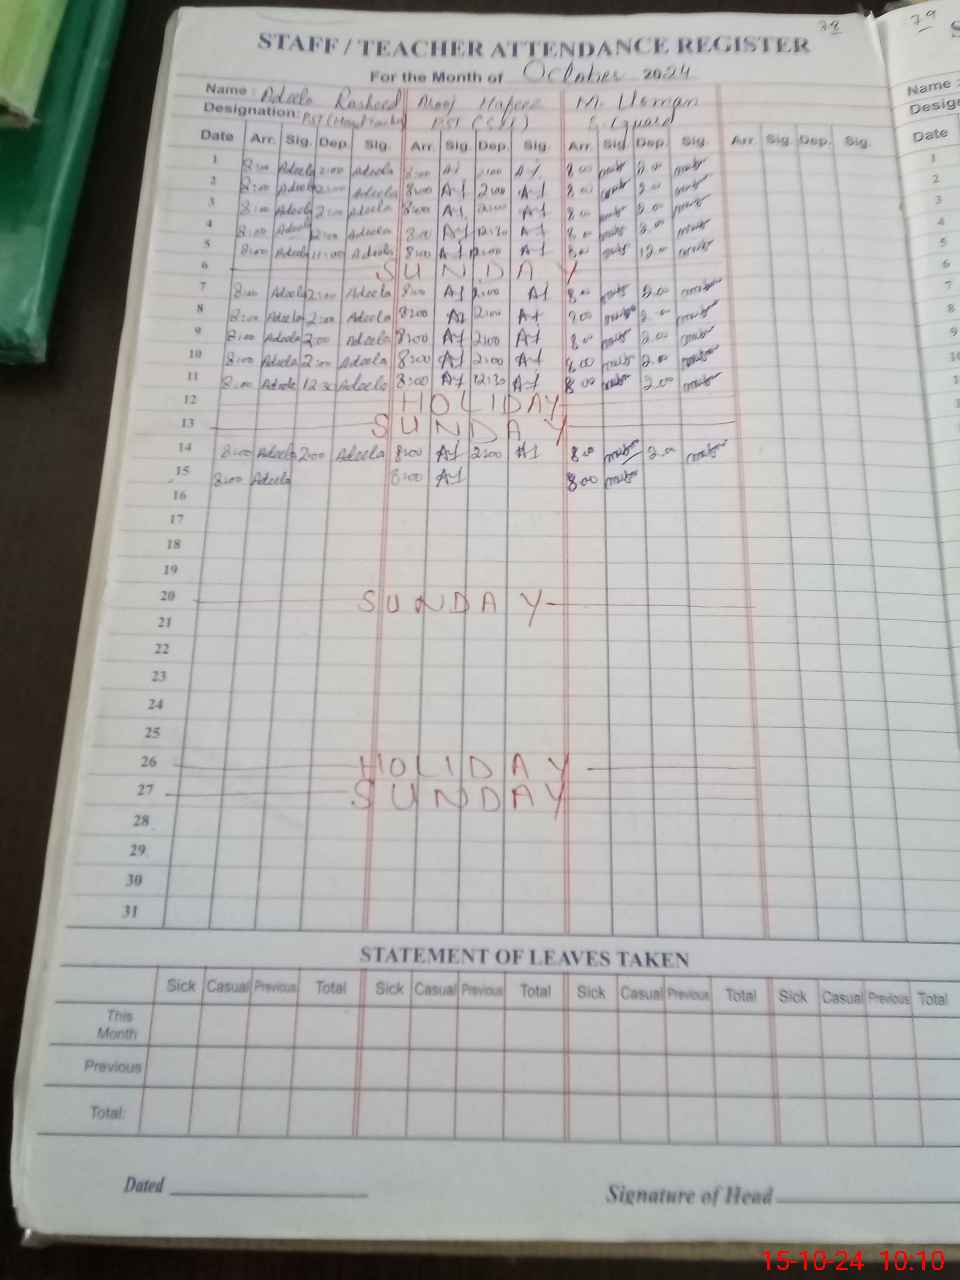 78
79
STAFF / TEACHER ATTENDANCE REGISTER
For the Month of October 2024
Name : Adeela Rasheed Hafeez M. Usman
Name :
Designation: PST (Head Teacher) PST
Date Arr. Sig. Dep. Sig. Arr. Sig. Dep. Sig. Arr. Sig. Dep. Sig. Arr. Sig. Dep. Sig.
Date
1 8:00 Adeela 2:00 Adeela 8:00 2:00 8:00 2.00
2 8:00 Adeela 2:00 Adeela 8:00 A-1 2:00 A-1 8:00 2.00
3 8:00 Adeela 2:00 Adeela 8:00 A-1 2:00 A-1 8:00 2.00
4 8:00 Adeela 12:00 Adeela 8:00 A-1 12:30 A-1 8:00 2.00
5 8:00 Adeela Adeela 8:00 A-1 A-1 8:00 12.00
6 SUNDAY
7 8:00 Adeela 2:00 Adeela 8:00 A-1 2:00 A1 8:00 2.00
8 8:00 Adeela 2:00 Adeela 8:00 A1 2:00 A-1 8:00 2.00
9 8:00 Adeela 2:00 Adeela 8:00 A-1 2:00 A-1 8:00 2.00
10 8:00 Adeela 2:00 Adeela 8:00 A-1 2:00 A-1 8:00 2.00
11 8:00 Adeela 12:30 Adeela 8:00 A-1 12:30 A-1 8:00 2.00
12 HOLIDAY
13 SUNDAY
14 8:00 Adeela 2:00 Adeela 8:00 A-1 2:00 A-1 8:00 2.00
15 8:00 Adeela 8:00 A-1 8:00
16
17
18
19
20 SUNDAY
21
22
23
24
25
26 HOLIDAY
27 SUNDAY
28
29
30
31
STATEMENT OF LEAVES TAKEN
Sick Casual Previous Total Sick Casual Previous Total Sick Casual Previous Total Sick Casual Previous Total
This
Month
Previous
Total:
Dated
Signature of Head
15-10-24 10:10